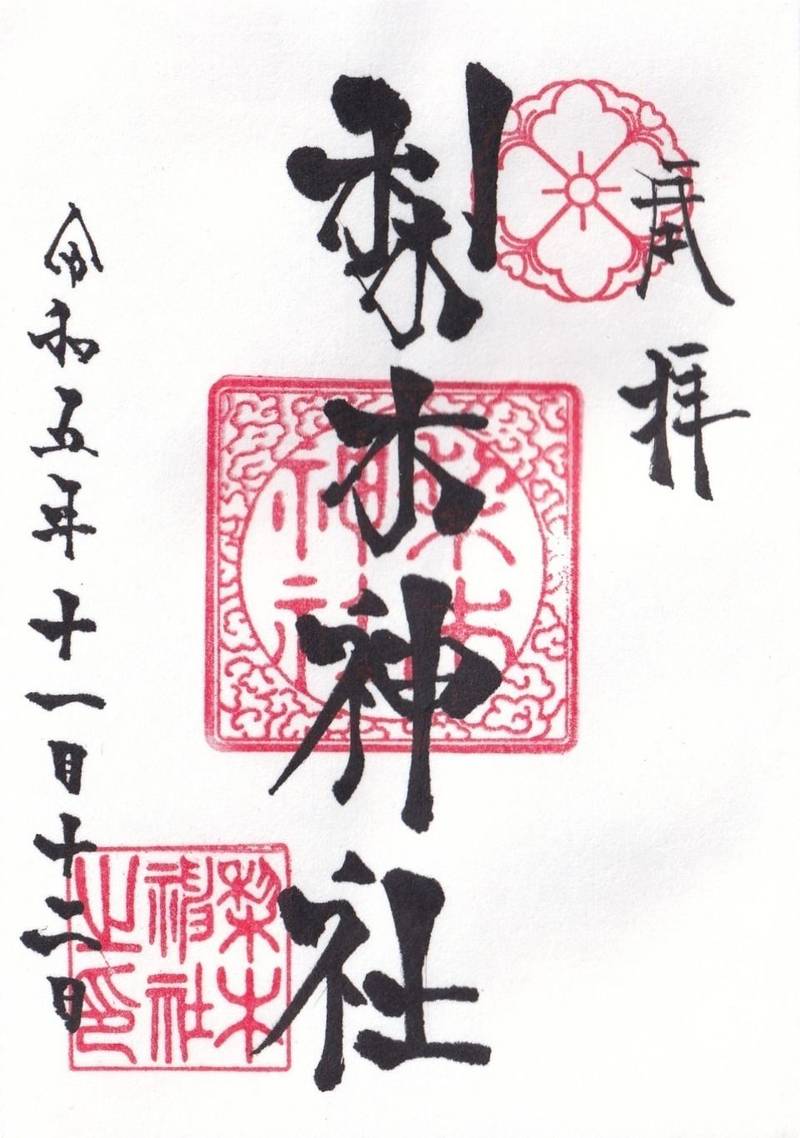 奉拝
梨木神社
梨木
神社
令和五年十一月十二日
梨木
神社
之印